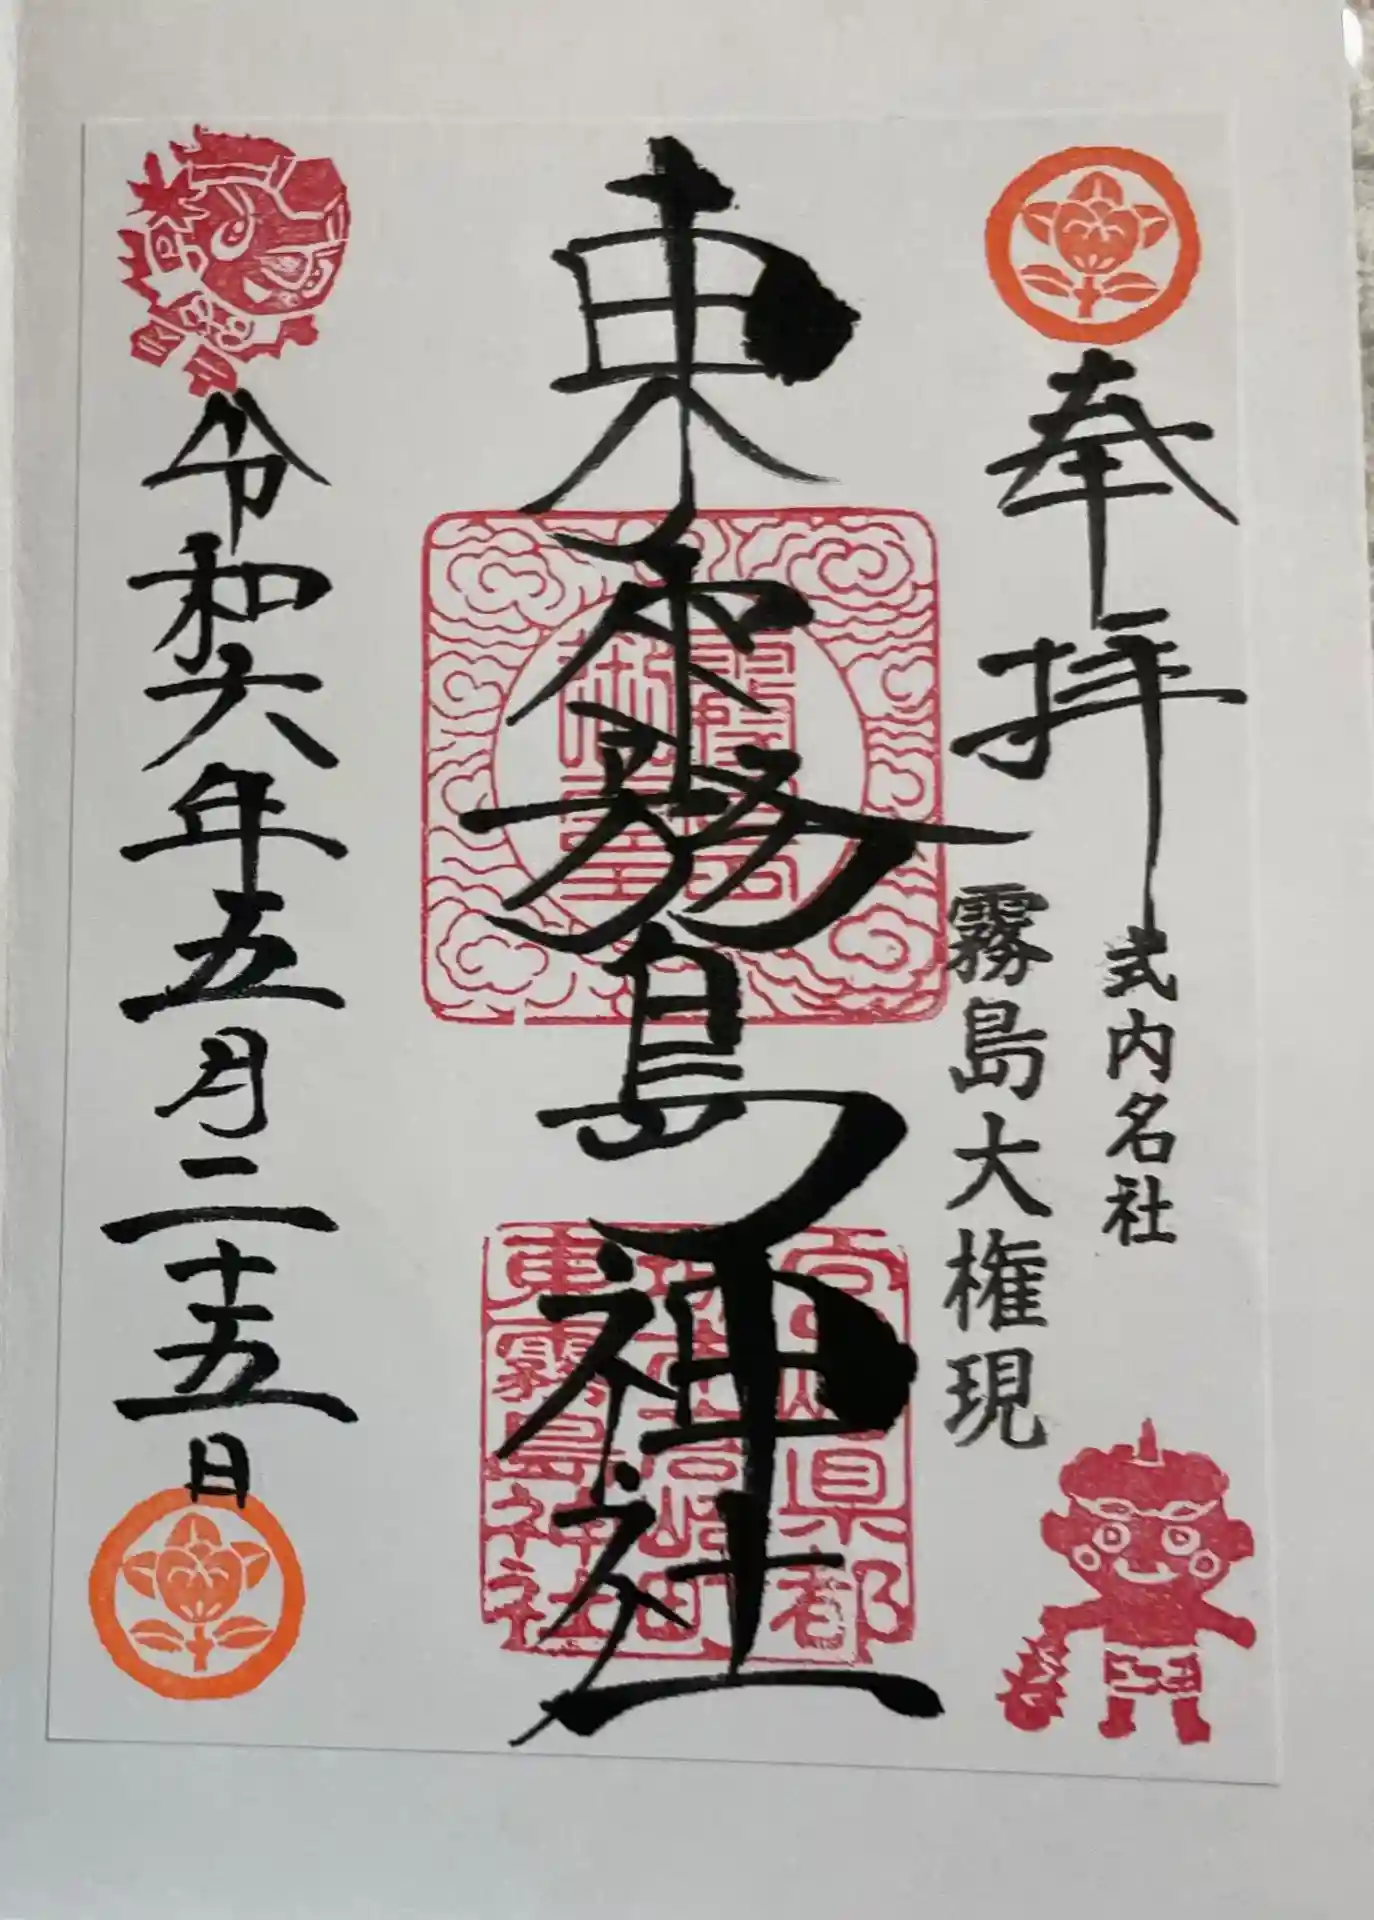 奉拝
式内名社
霧島大権現
東霧島神社
宮崎県都
東霧島神社
令和六年五月二十五日